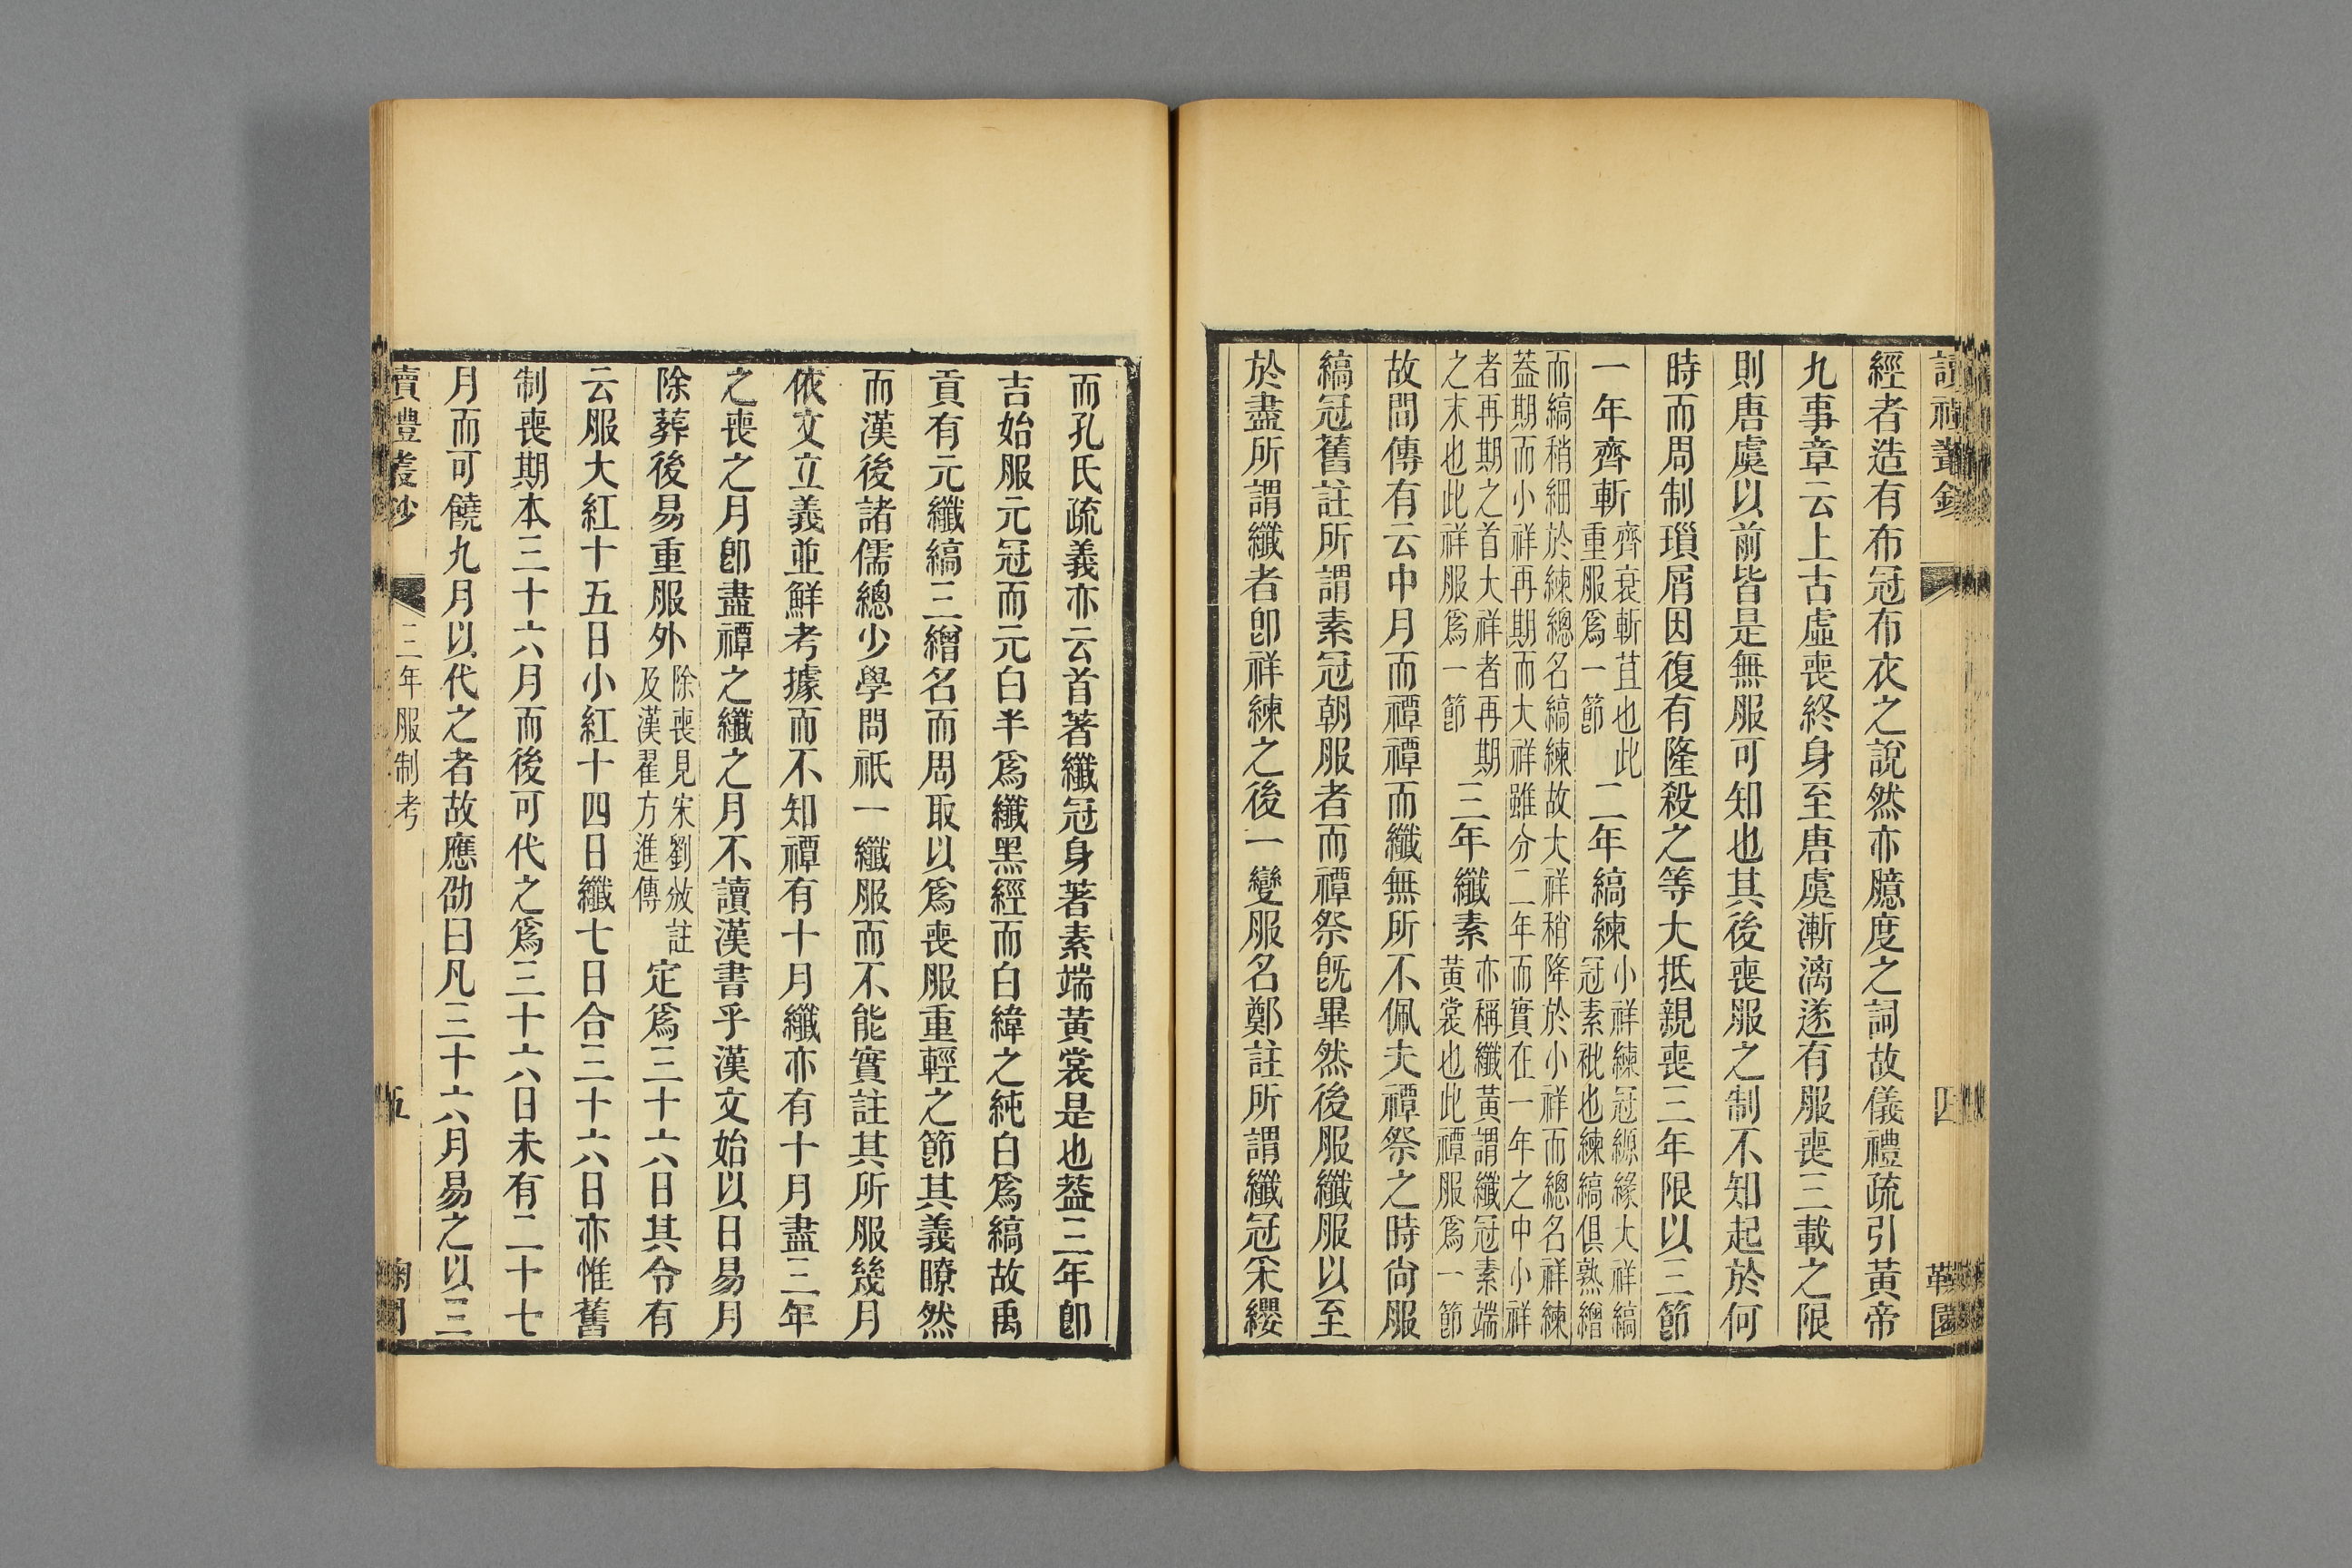 經者造有布冠布衣之說然亦臆度之詞故儀禮疏引黃帝
九事章云上古虛喪終身至唐虞漸漓遂有服喪三載之限
則唐虞以前皆是無服可知也其後喪服之制不知起於何
時而周制瑣屑因復有隆殺之等大抵親喪三年限以三節
一年齊斬
齊衰斬苴也此
重服爲一節
二年縞練
小祥練冠縓緣大祥縞
冠素紕也練縞俱熟繒
而縞稍細於練總名縞練故大祥稍降於小祥而總名祥練
葢期而小祥再期而大祥雖分二年而實在一年之中小祥
者再期之首大祥者再期
之末也此祥服爲一節
三年纖素
亦稱纖黃謂纖冠素端
黃裳也此禫服爲一節
故間傳有云中月而禫禫而纖無所不佩夫禫祭之時尙服
縞冠舊註所謂素冠朝服者而禫祭旣畢然後服纖服以至
於盡所謂纖者卽祥練之後一變服名鄭註所謂纖冠采纓
而孔氏疏義亦云首著纖冠身著素端黃裳是也葢三年卽
吉始服元冠而元白半爲纖黑經而白緯之純白爲縞故禹
貢有元纖縞三繒名而周取以爲喪服重輕之節其義瞭然
而漢後諸儒總少學問祇一纖服而不能實註其所服幾月
依文立義並鮮考據而不知禫有十月纖亦有十月盡三年
之喪之月卽盡禫之纖之月不讀漢書乎漢文始以日易月
除葬後易重服外
除喪見宋劉攽註
及漢翟方進傳
定爲三十六日其令有
云服大紅十五日小紅十四日纖七日合三十六日亦惟舊
制喪期本三十六月而後可代之爲三十六日未有二十七
月而可饒九月以代之者故應劭曰凡三十六月易之以三
三年服制考
五